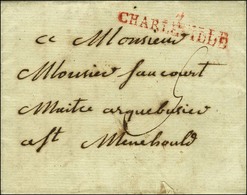 7
CHARLEVILLE
a Monsieur
Monsier faucourt
Maitre arquebusier
a St Menehould